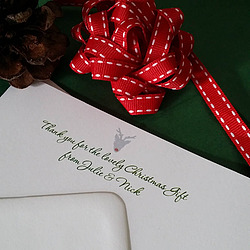 Thank you for the lovely Christmas Gift
from Julie & Nick